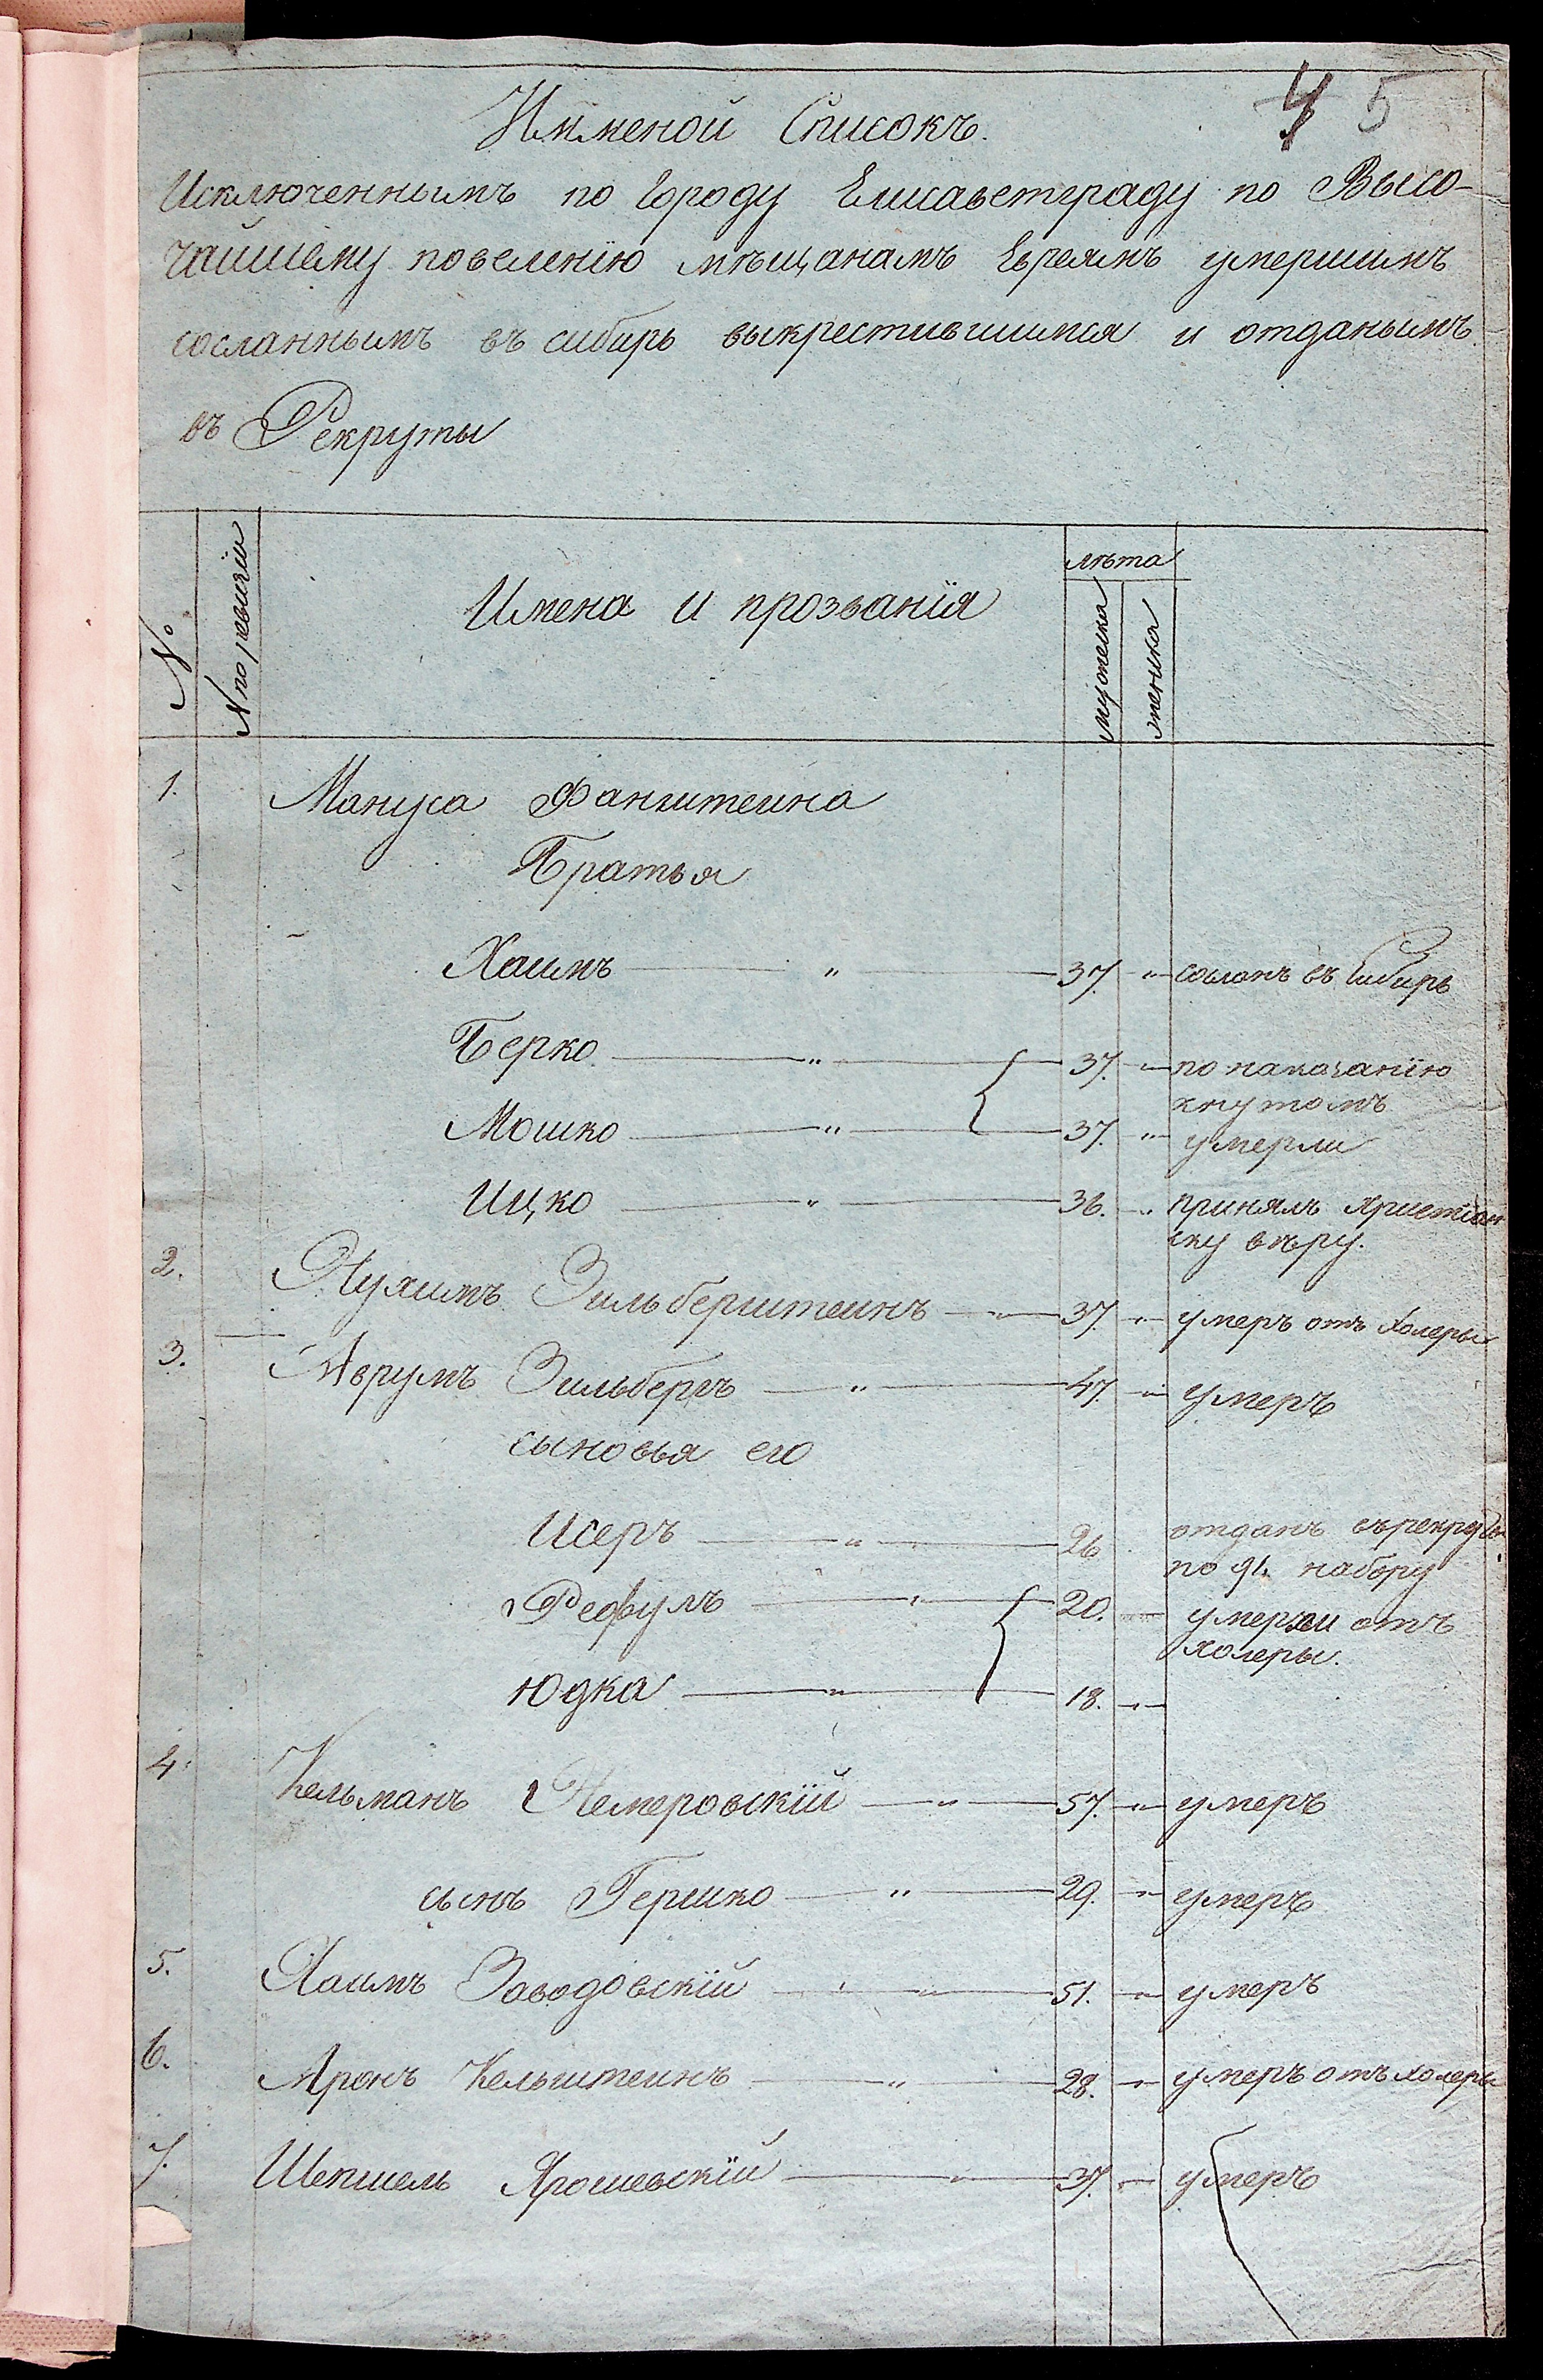 4 5
Имменой Списокъ.
Исключеннымъ по Городу Елисаветграду по Высо-
чайшему повеленію мѣщанамъ Евреямъ умершимъ
сосланнымъ въ сибирь выкрестившимся и отданымъ
въ Рекруты
№
N по ревизіи
Имена и прозванія
лѣта
мужеска
женска
1. Мануса Фанштеина
Братья
Хаимъ — " — 37. " сосланъ въ Сибирь
Берко — " — 37. " по наказанію
кнутомъ
Мошко — " — 37. " умерли
Ицко — " — 36. " принялъ христіан
ску вѣру.
2. Нухимъ Зильберштеинъ — " — 37. " умеръ отъ Холеры
3. Аврумъ Зильберъ — " — 47. " умеръ
сыновья его
Исеръ — " — 26 отданъ въ рекруты
по 91. набору
Рефулъ — " — 20. умерли отъ
холеры.
Юдка — " — 18. "
4. Кельманъ Немеровскій — " — 57. " умеръ
сынъ Гершко — " — 29. " умеръ
5. Хаимъ Заводовскій — " — 51. " умеръ
6. Аронъ Кельштеинъ — " — 28. " умеръ отъ холеры
7. Шепшель Ярошевскій — " — 37. " умеръ